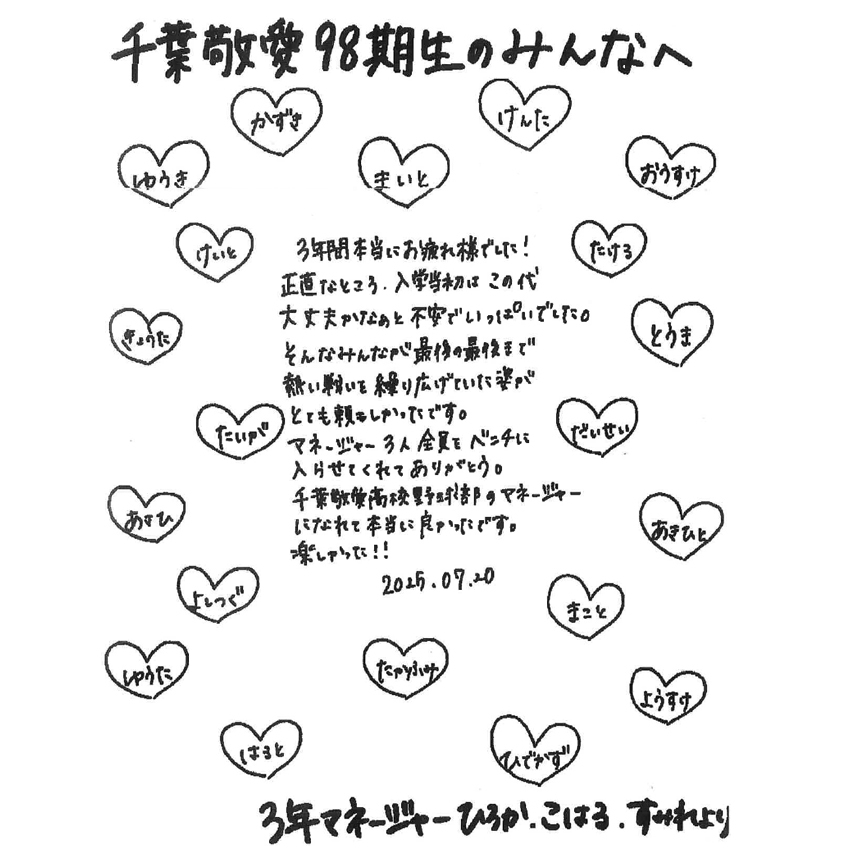 千葉敬愛98期生のみんなへ
かずき
けんた
ゆうき
まいと
おうすけ
けいと
たける
きょうた
とうま
たいが
だいせい
あさひ
あきひと
よしつぐ
まこと
ゆうた
たかふみ
ようすけ
はると
ひでかず
3年間本当にお疲れ様でした!
正直なところ、入学当初はこの代
大丈夫かなぁと不安でいっぱいでした。
そんなみんなが最後の最後まで
熱い戦いを繰り広げていた姿が
とても頼もしかったです。
マネージャー3人全員をベンチに
入らせてくれてありがとう。
千葉敬愛高校野球部のマネージャー
になれて本当に良かったです。
楽しかった!!
2025.07.20
3年マネージャーひろか、こはる、すみれより